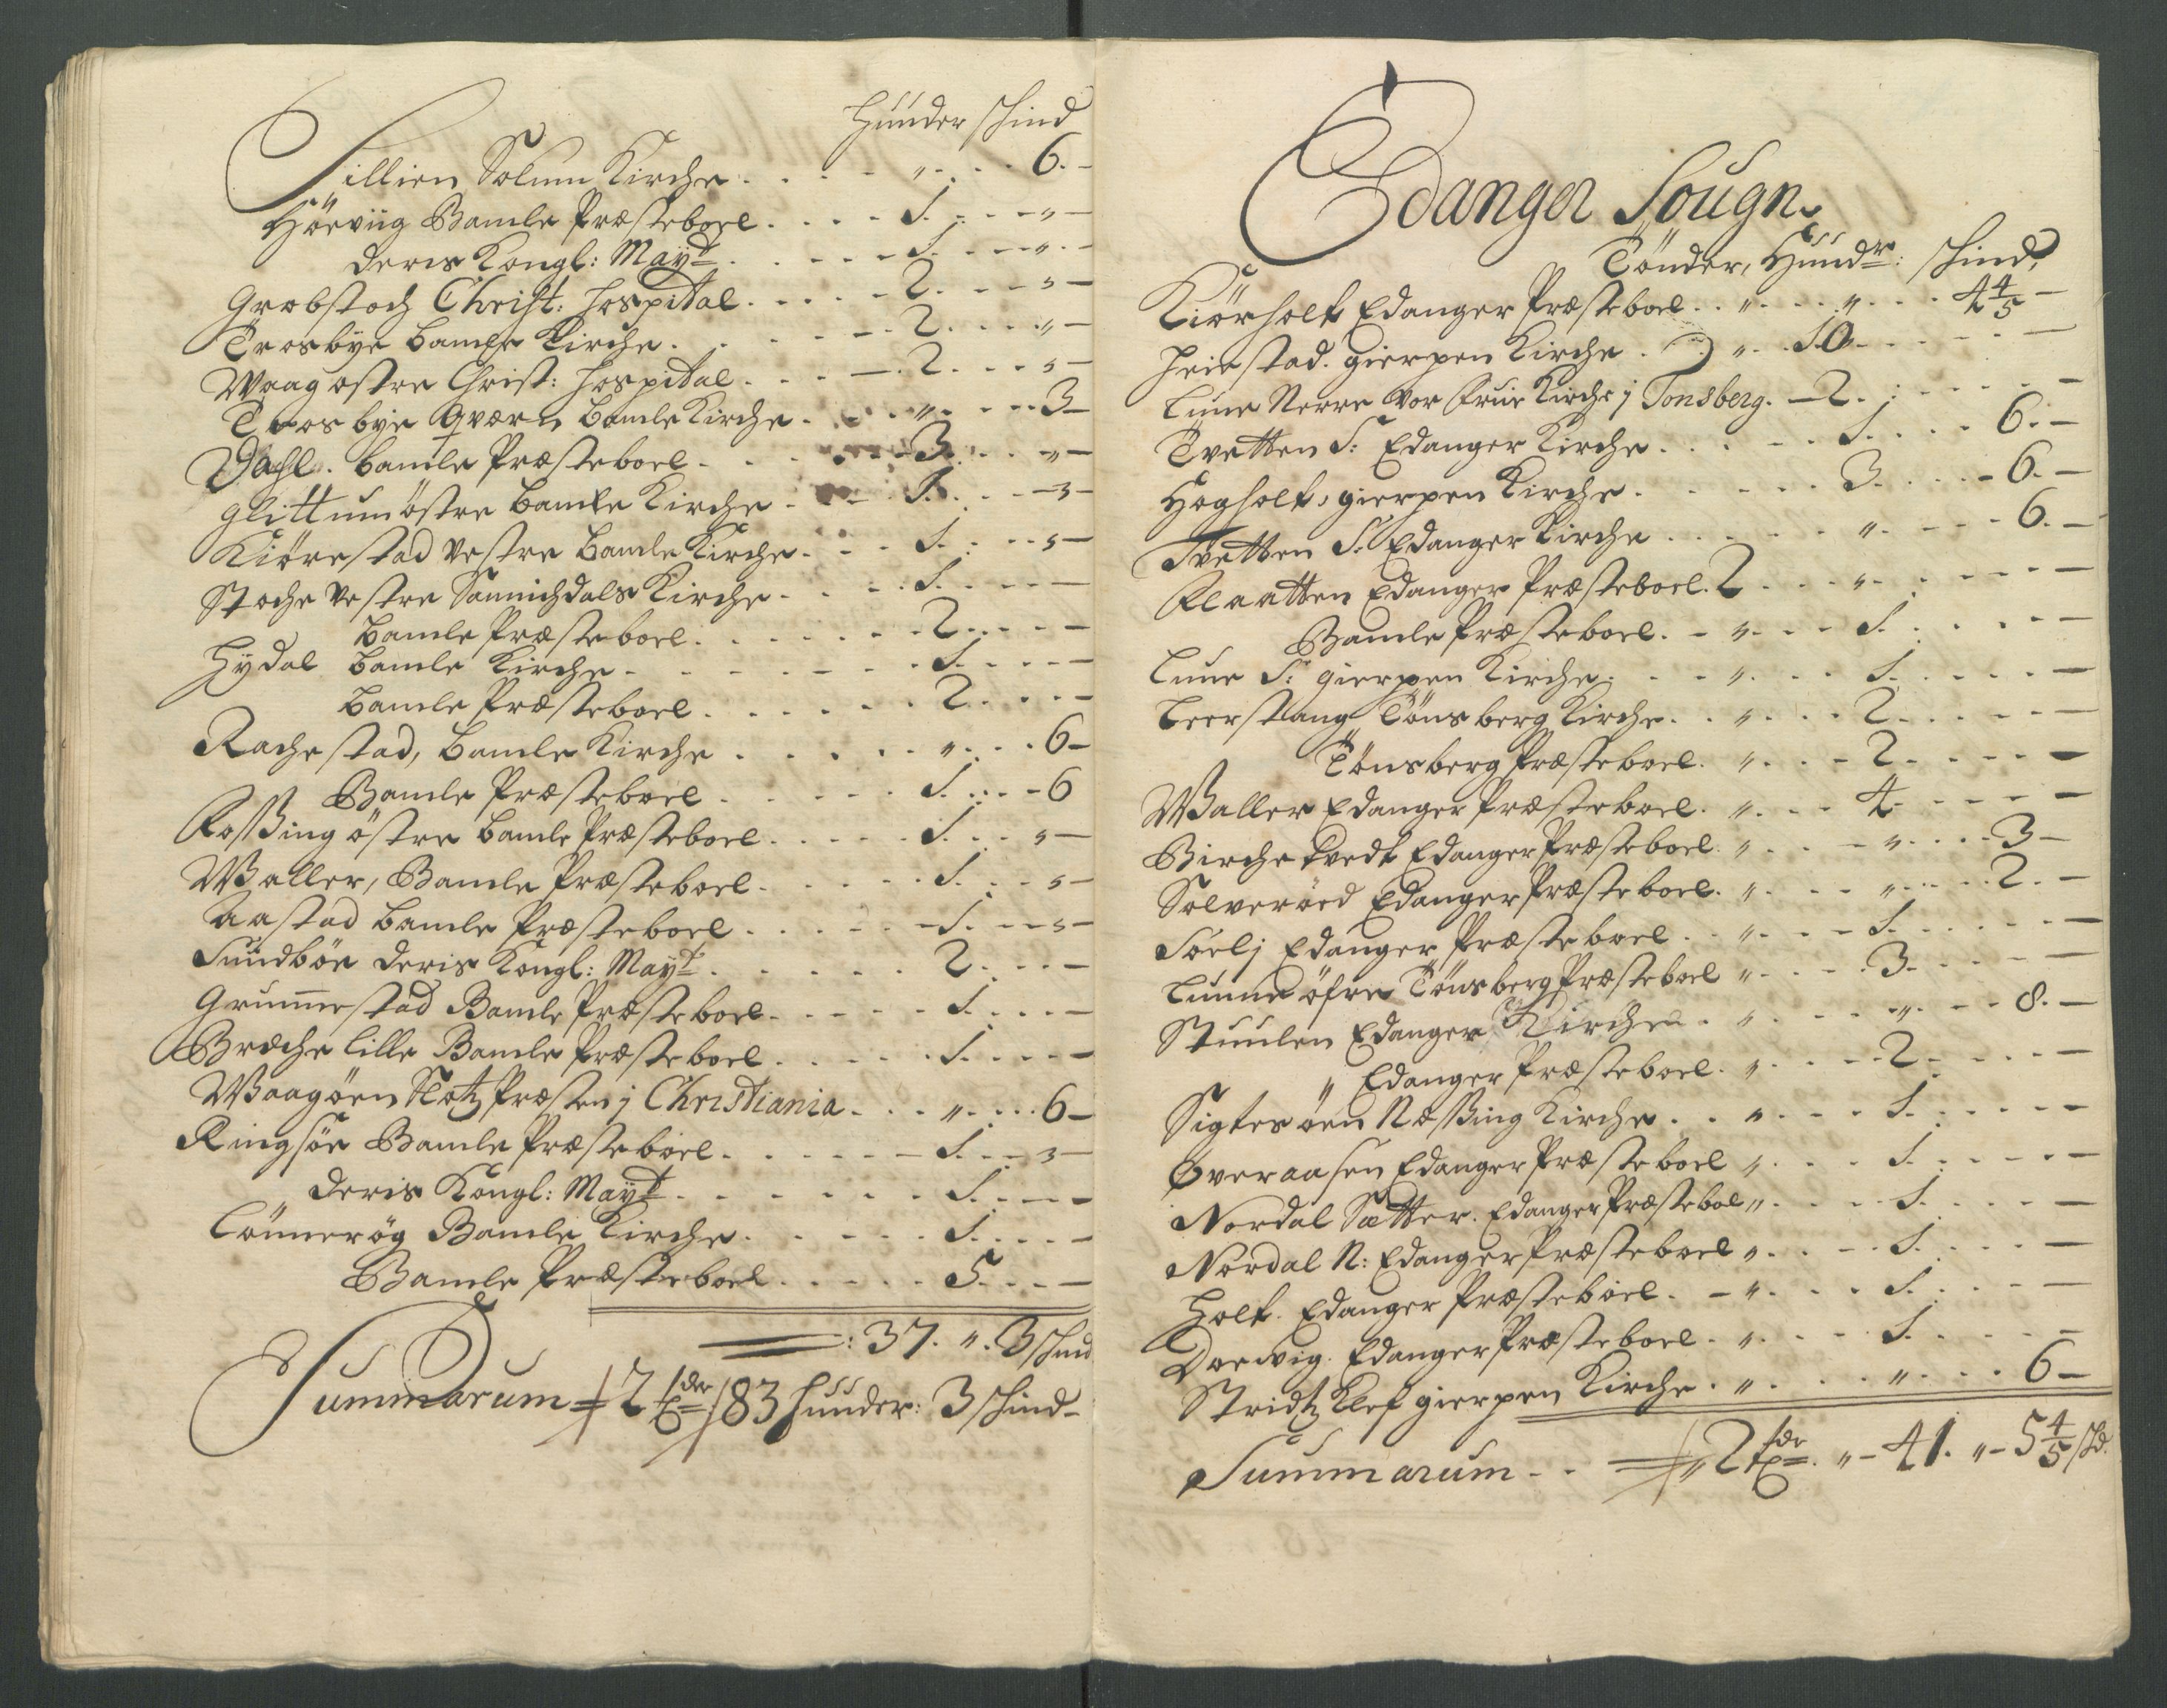 Hunder schind
Tillien Solum Kirche . . . . „ . . . 6. –
Hörviig Bamle Præsteboel . . . . 1. . . . „ –
Deris Kongl: Mayt . . . . . 1. . . . „ –
Grobstoch Christ: Hospital . . . . 2. . . . „ –
Trosbye Bamle Kirche . . . . 2. . . . „ –
Waag ostre Christ: Hospital . . . . 2. . . . „ –
Trosbye Qværn Bamle Kirche . . . „ . . . . 3 –
Dahl. Bamle Præsteboel . . . . 3. . . . „ –
Glittum östre Bamle Kirche . . . 1. . . . „ –
Kiörestad vestre Bamle Kirche . . . 1. . . . „ –
Stoche vestre Sannichdals Kirche . . . . 1. . . . –
Bamle Præsteboel . . . . . . 2. . . . –
Hydal Bamle Kirche . . . . . . 1. . . . –
Bamle Præsteboel . . . . . . 2. . . . –
Rachestad, Bamle Kirche . . . . . „ . . . 6 –
Bamle Præsteboel . . . . . 1. . . . 6
Rossing östre Bamle Præsteboel . . . . . 1. . . „ –
Waller, Bamle Præsteboel . . . . . 1. . . „ –
Aastad Bamle Præsteboel . . . . . 1. . . „ –
Sundböe Deris Kongl: Mayt . . . . . 2. . . –
Grummestad Bamle Præsteboel . . . . . 1. . . . –
Bræche lille Bamle Præsteboel . . . . . 1. . . . –
Waagöen Slotz Præsten j Christiania . . . „ . . . 6 –
Ringsöe Bamle Præsteboel . . . . . 1. . . „ –
Deris Kongl: Mayt . . . . . . 1. . . –
Lönnerög Bamle Kirche . . . . . 1. . . . –
Bamle Præsteboel . . . . . 5. . . –
: 37. „ . 3 schind
Summarum 2 tder 83 Hunder: 3 schind –
Edanger Sougn
Tönder, Hundr: schind,
Kiörholt Edanger Præsteboel . . „ . . . „ . . . 4 4/5 –
Heiestad. gierpen Kirche . „ . . 10 . . . . –
Lune Nerre Vor Frue Kirche j Tonsberg. – 2. . . . . –
Tvetten S: Edanger Kirche . . . . . 1. . . . 6. –
Hogholt, gierpen Kirche . . . . . 3. . . . 6. –
Tvetten S: Edanger Kirche . . . . . „ . . . . 6. –
Flaatten Edanger Præsteboel. 2 . . . „ . . . . –
Bamle Præsteboel. – „ . . . 1. . . . . –
Lune S: gierpen Kirche . . . „ . . . 1. . . . . –
Leerstang Tönsberg Kirche . . „ . . . 2. . . . . –
Tönsberg Præsteboel. „ . . . 2. . . . . –
Waller Edanger Præsteboel. „ . . . 4. . . . . –
Birchetvedt Edanger Præsteboel. „ . . . „ . . . . 3 –
Solveröed Edanger Præsteboel. „ . . . „ . . . . 2. –
Söelj Edanger Præsteboel . . „ . . . 1. . . . . –
Lunne öfre Tönsberg Præsteboel „ . . . . 3. . . . –
Stuulen Edanger Kirche . „ . . . . „ . . . 8. –
„ Edanger Præsteboel. „ . . . . 2. . . . –
Sigtesöen Næssing Kirche . . „ . . . 1. . . . . –
Overaasen Edanger Præsteboel „ . . . 1. . . . . –
Nordal Sætter. Edanger Præstebol „ . . . . 1. . . . –
Nordal N: Edanger Præsteboel „ . . . . 1. . . . –
Holt. Edanger Præsteboel. – „ . . . 1. . . . –
Dorwig. Edanger Præsteboel . „ . . . . 1. . . . –
Stridtz Klef gierpen Kirche . „ . . . . „ . . . 6 –
Summarum . . „ 2 tder „ – 41. „ – 5 4/5 schd.